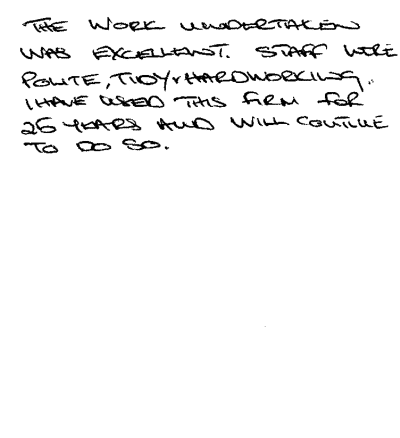 THE WORK UNDERTAKEN
WAS EXCELLENT. STAFF WERE
POLITE, TIDY + HARDWORKING.
I HAVE USED THIS FIRM FOR
26 YEARS AND WILL CONTINUE
TO DO SO.